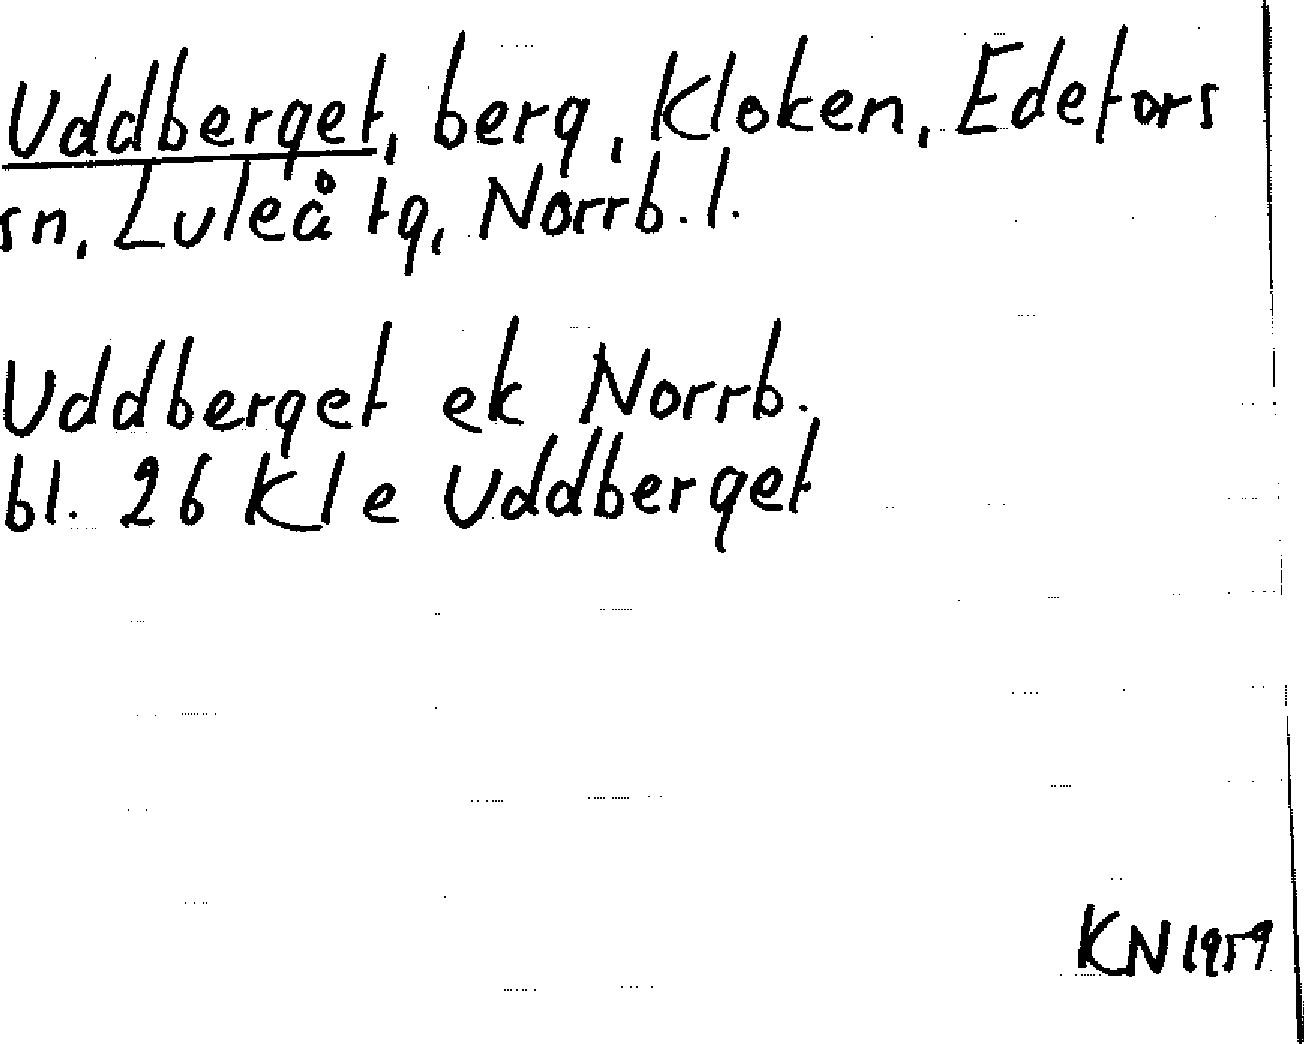 Uddberget, berg, Kloken, Edefors
sn, Luleå tg, Norrb. l.
Uddberget ek Norrb.
bl. 26 Kl e Uddberget
KN 1959